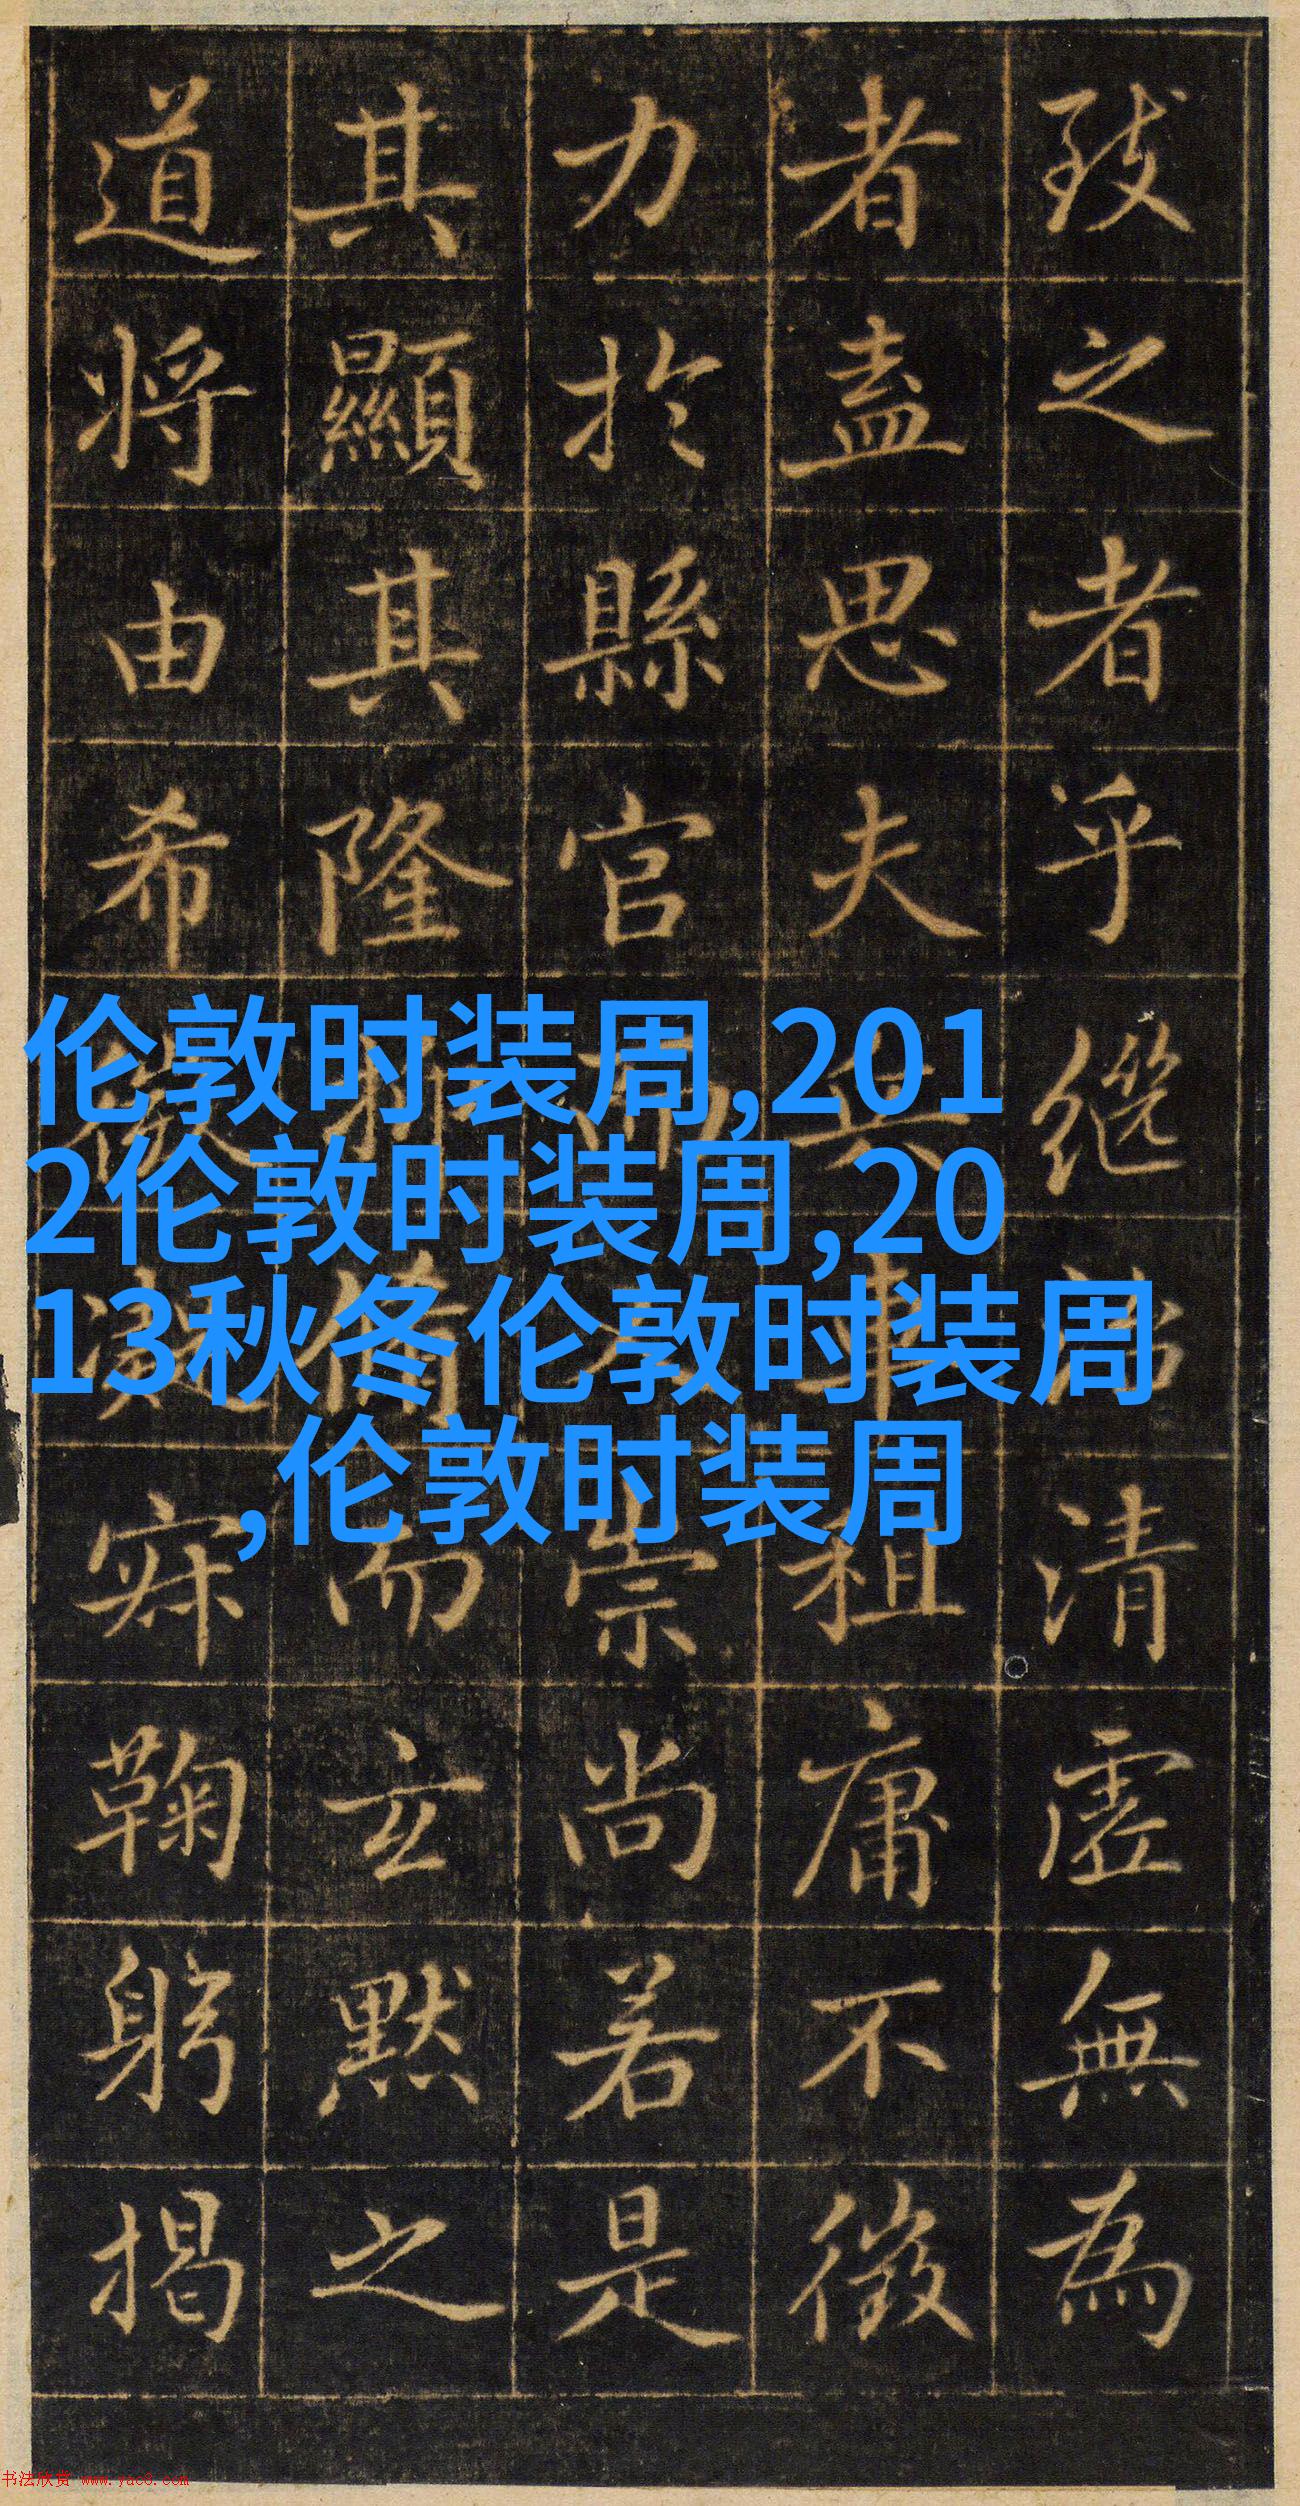 致之者乎繼清虛無為
者盍思夫租庸不徵
力於縣官而崇尚若是
其顯其隆而玄默之
道將由希微凝寂鞠躬揭
伦敦时装周,201
2伦敦时装周,20
13秋冬伦敦时装周
,伦敦时装周
书法欣赏 www.yac8.com